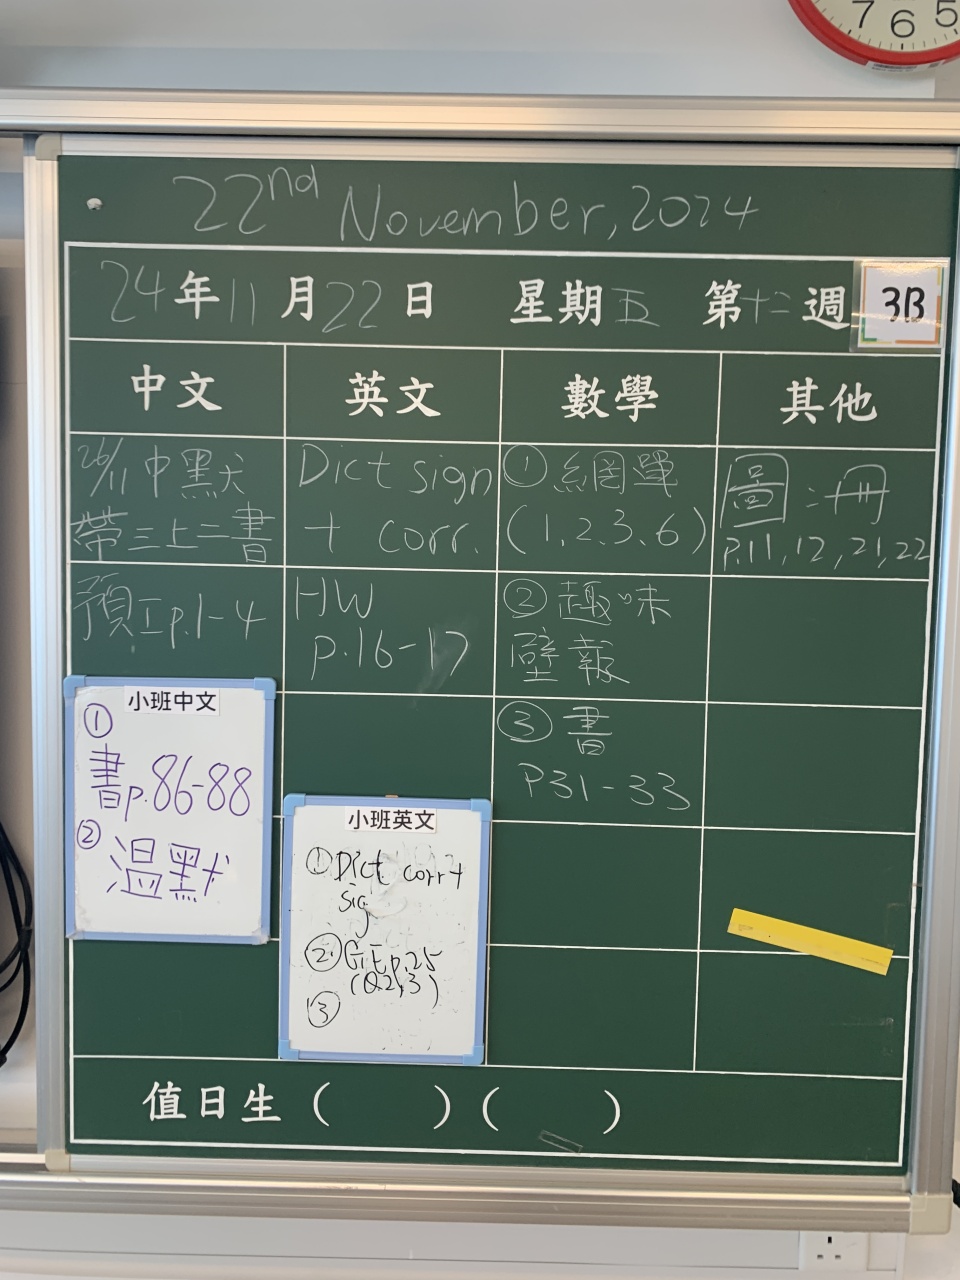 7 6 5
22nd November, 2024
24年11月22日 星期五 第十二週 3B
中文 英文 數學 其他
26/11中默
帶三上二書
預工p.1-4
小班中文
①
書p.86-88
②
溫默
Dict sign
+ corr.
HW
p.16-17
小班英文
① Dict corr+
sig
② G.E p.25
(Q.2,3)
③
① 網單
(1.2.3.6)
② 趣味
壁報
③ 書
P31-33
圖:冊
p.11,12,21,22
值日生 (    ) (    )